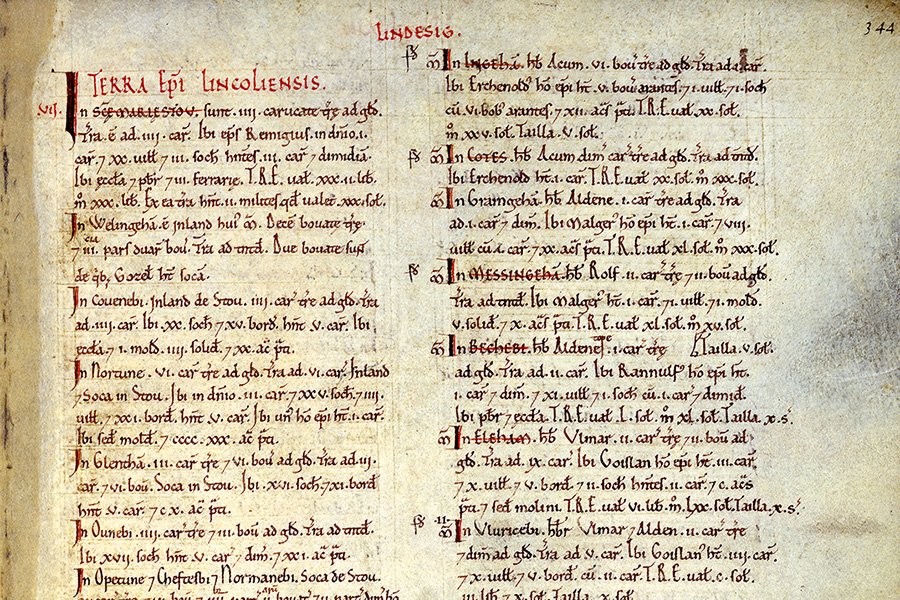 LINDESIG.
344
TERRA Ep̄I LINCOLIENSIS.
VII. In SC̄E MARIESTOV. sunt .iiii. carucate t̄re ad gld̄.
T̄ra .ē ad .iiii. car̄. Ibi ep̄s Remigius in dn̄io .i.
car̄. ⁊ xx. uilł ⁊ iii. soch hn̄tes .iii. car̄ ⁊ dimidiā.
Ibi eccła ⁊ pb̄r ⁊ iii. ferrarie. T.R.E. uał .xxx.ii. lib̄.
m̊ xxx. lib̄. Ex ea t̄ra hn̄t .ii. milites qd̄ ualet .xxx. soł.
In Welingehā .ē inland hui᷒ M̄. Decē bouate t̄re.
⁊ iii. pars duar̄ bou. T̄ra ad tn̄td̄. Due bouate sunt
de q̄b᷒ Gozeł ht̄ socā.
In Couenebi. Inland de Stou. iiii. car̄ t̄re ad gld̄. T̄ra
ad .iiii. car̄. Ibi .xx. soch ⁊ xv. bord̄. hn̄t .v. car̄. Ibi
eccła ⁊ i. molđ .iiii. solid̄. ⁊ xx. ac̄ p̄ti.
In Nortune. vi. car̄ t̄re ad gld̄. T̄ra ad .vi. car̄. Inland
⁊ Soca in Stou. Ibi in dn̄io .iii. car̄. ⁊ xxv. soch ⁊ iiii.
uilł. ⁊ xxi. bord̄. hn̄t .v. car̄. Ibi un᷒ hō ep̄i ht̄ .i. car̄.
Ibi sed̄ molđ. ⁊ cccc. xxx. ac̄ p̄ti.
In Glenthā .iii. car̄ t̄re ⁊ vi. bou ad gld̄. T̄ra ad .iii.
car̄. ⁊ vi. bou. Soca in Stou. Ibi .xvi. soch ⁊ xi. bord̄
hn̄t .v. car̄. ⁊ c x. ac̄ p̄ti.
In Ounebi .iiii. car̄ t̄re ⁊ iii. bou ad gld̄. T̄ra ad tn̄td̄.
Ibi xvii. soch hn̄t .v. car̄ ⁊ dim̄. ⁊ xxi. ac̄ p̄ti.
In Opetune ⁊ Cheftesbi ⁊ Normanebi. Soca de Stou.
M̄ In INGEHĀ. hb̄ Acum. vi. bou t̄re ad gld̄. T̄ra ad .i. car̄.
Ibi Erchenold᷒ hō ep̄i ht̄ .v. bou arantes. ⁊ i. uilł. ⁊ i. soch
cū vi. bob᷒ arantes. ⁊ xii. ac̄s p̄ti. T.R.E. uał .xx. soł.
m̊ xxv. soł. Tailla .v. soł.
M̄ In COTES. hb̄ Acum dim̄ car̄ t̄re ad gld̄. T̄ra ad tn̄td̄.
Ibi Erchenold ht̄ .i. car̄. T.R.E. uał xx. soł. m̊ xxx. soł.
M̄ In Graingehā. hb̄ Aldene .i. car̄ t̄re ad gld̄. T̄ra
ad .i. car̄ ⁊ dim̄. Ibi Malger᷒ hō ep̄i ht̄ .i. car̄. ⁊ viii.
uilł cū .i. car̄. ⁊ xx. ac̄s p̄ti. T.R.E. uał xl. soł. m̊ xxx. soł.
M̄ In MESSINGEHĀ. hb̄ Rolf .ii. car̄ t̄re ⁊ ii. bou ad gld̄.
T̄ra ad tn̄td̄. Ibi Malger᷒ ht̄ .i. car̄. ⁊ i. uilł. ⁊ i. molđ.
v. solid̄. ⁊ x. ac̄s p̄ti. T.R.E. uał xl. soł. m̊ xv. soł.
M̄ In BECHEBI. hb̄ Aldene .i. car̄ t̄re Tailla .v. soł.
ad gld̄. T̄ra ad .ii. car̄. Ibi Rannulf᷒ hō ep̄i ht̄.
.i. car̄ ⁊ dim̄. ⁊ xi. uilł. ⁊ i. soch cū .i. car̄ ⁊ dimid̄.
Ibi pb̄r ⁊ eccła. T.R.E. uał .l. soł. m̊ xl. soł. Tailla .x. s̄.
M̄ In ELEHAM. hb̄ Vlmar .ii. car̄ t̄re ⁊ ii. bou ad
gld̄. T̄ra ad .ix. car̄. Ibi Goislan hō ep̄i ht̄ .iii. car̄.
⁊ x. uilł. ⁊ v. bord̄. ⁊ ii. soch hn̄tes .ii. car̄ ⁊ c. ac̄s
p̄ti. ⁊ sed̄ molini. T.R.E. uał vi. lib̄. m̊ lxx. soł. Tailla .x. s̄.
M̄ In Vluricebi. hb̄r Vlmar ⁊ Alden .ii. car̄ t̄re
⁊ dim̄ ad gld̄. T̄ra ad .v. car̄. Ibi Goislan᷒ ht̄ .iiii. car̄.
⁊ x. uilł. ⁊ v. bord̄ cū .ii. car̄. T.R.E. uał .c. soł.